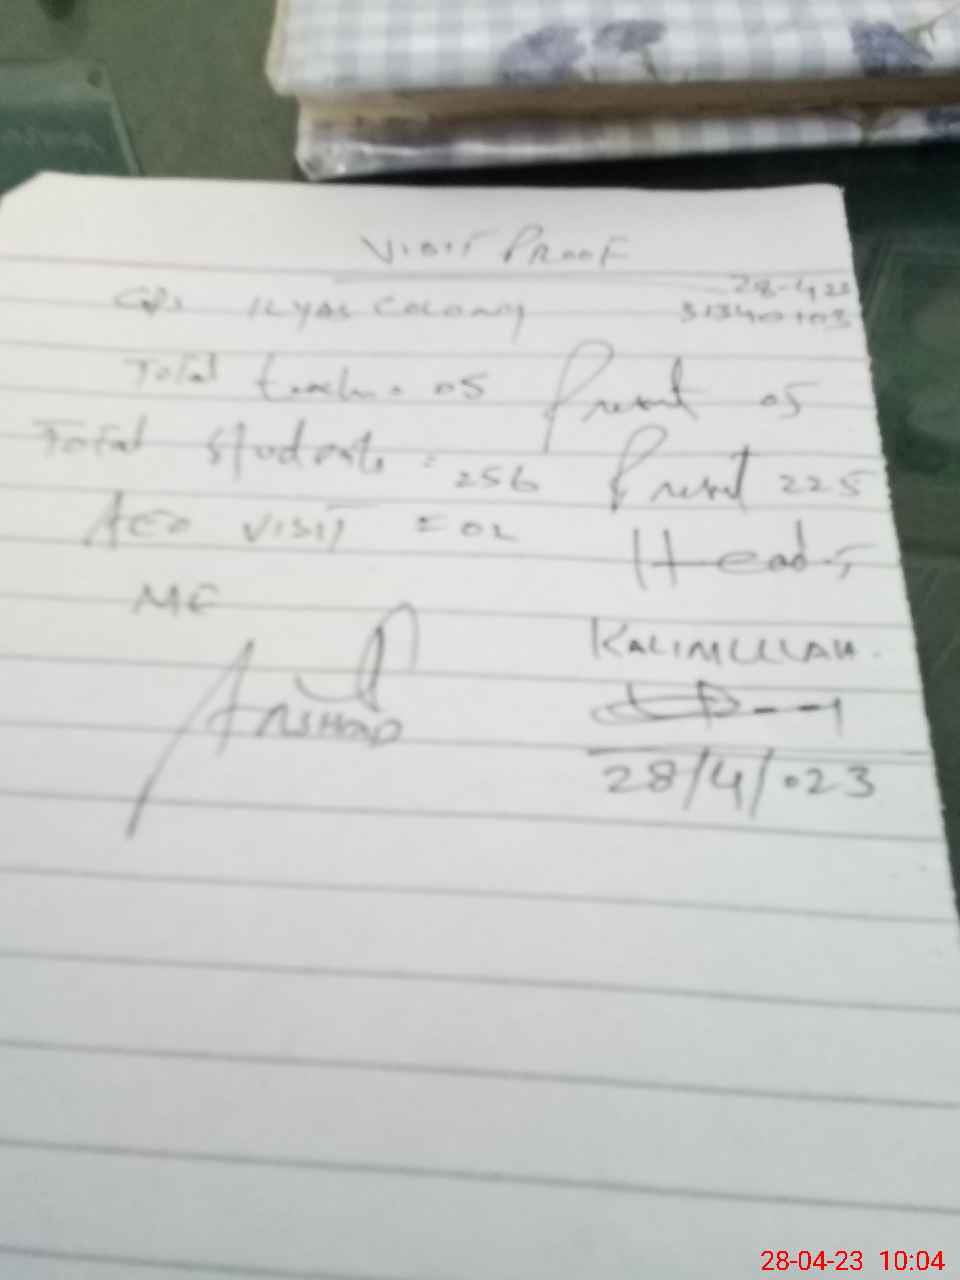 VISIT PROOF
28-4-23
GPS ILYAS COLONY 31340103
Total teach. 05 Present 05
Total students = 256 Present 225
AEO VISIT = 02 Head
ME
KALIMULLAH.
ARSHAD
28/4/023
28-04-23 10:04